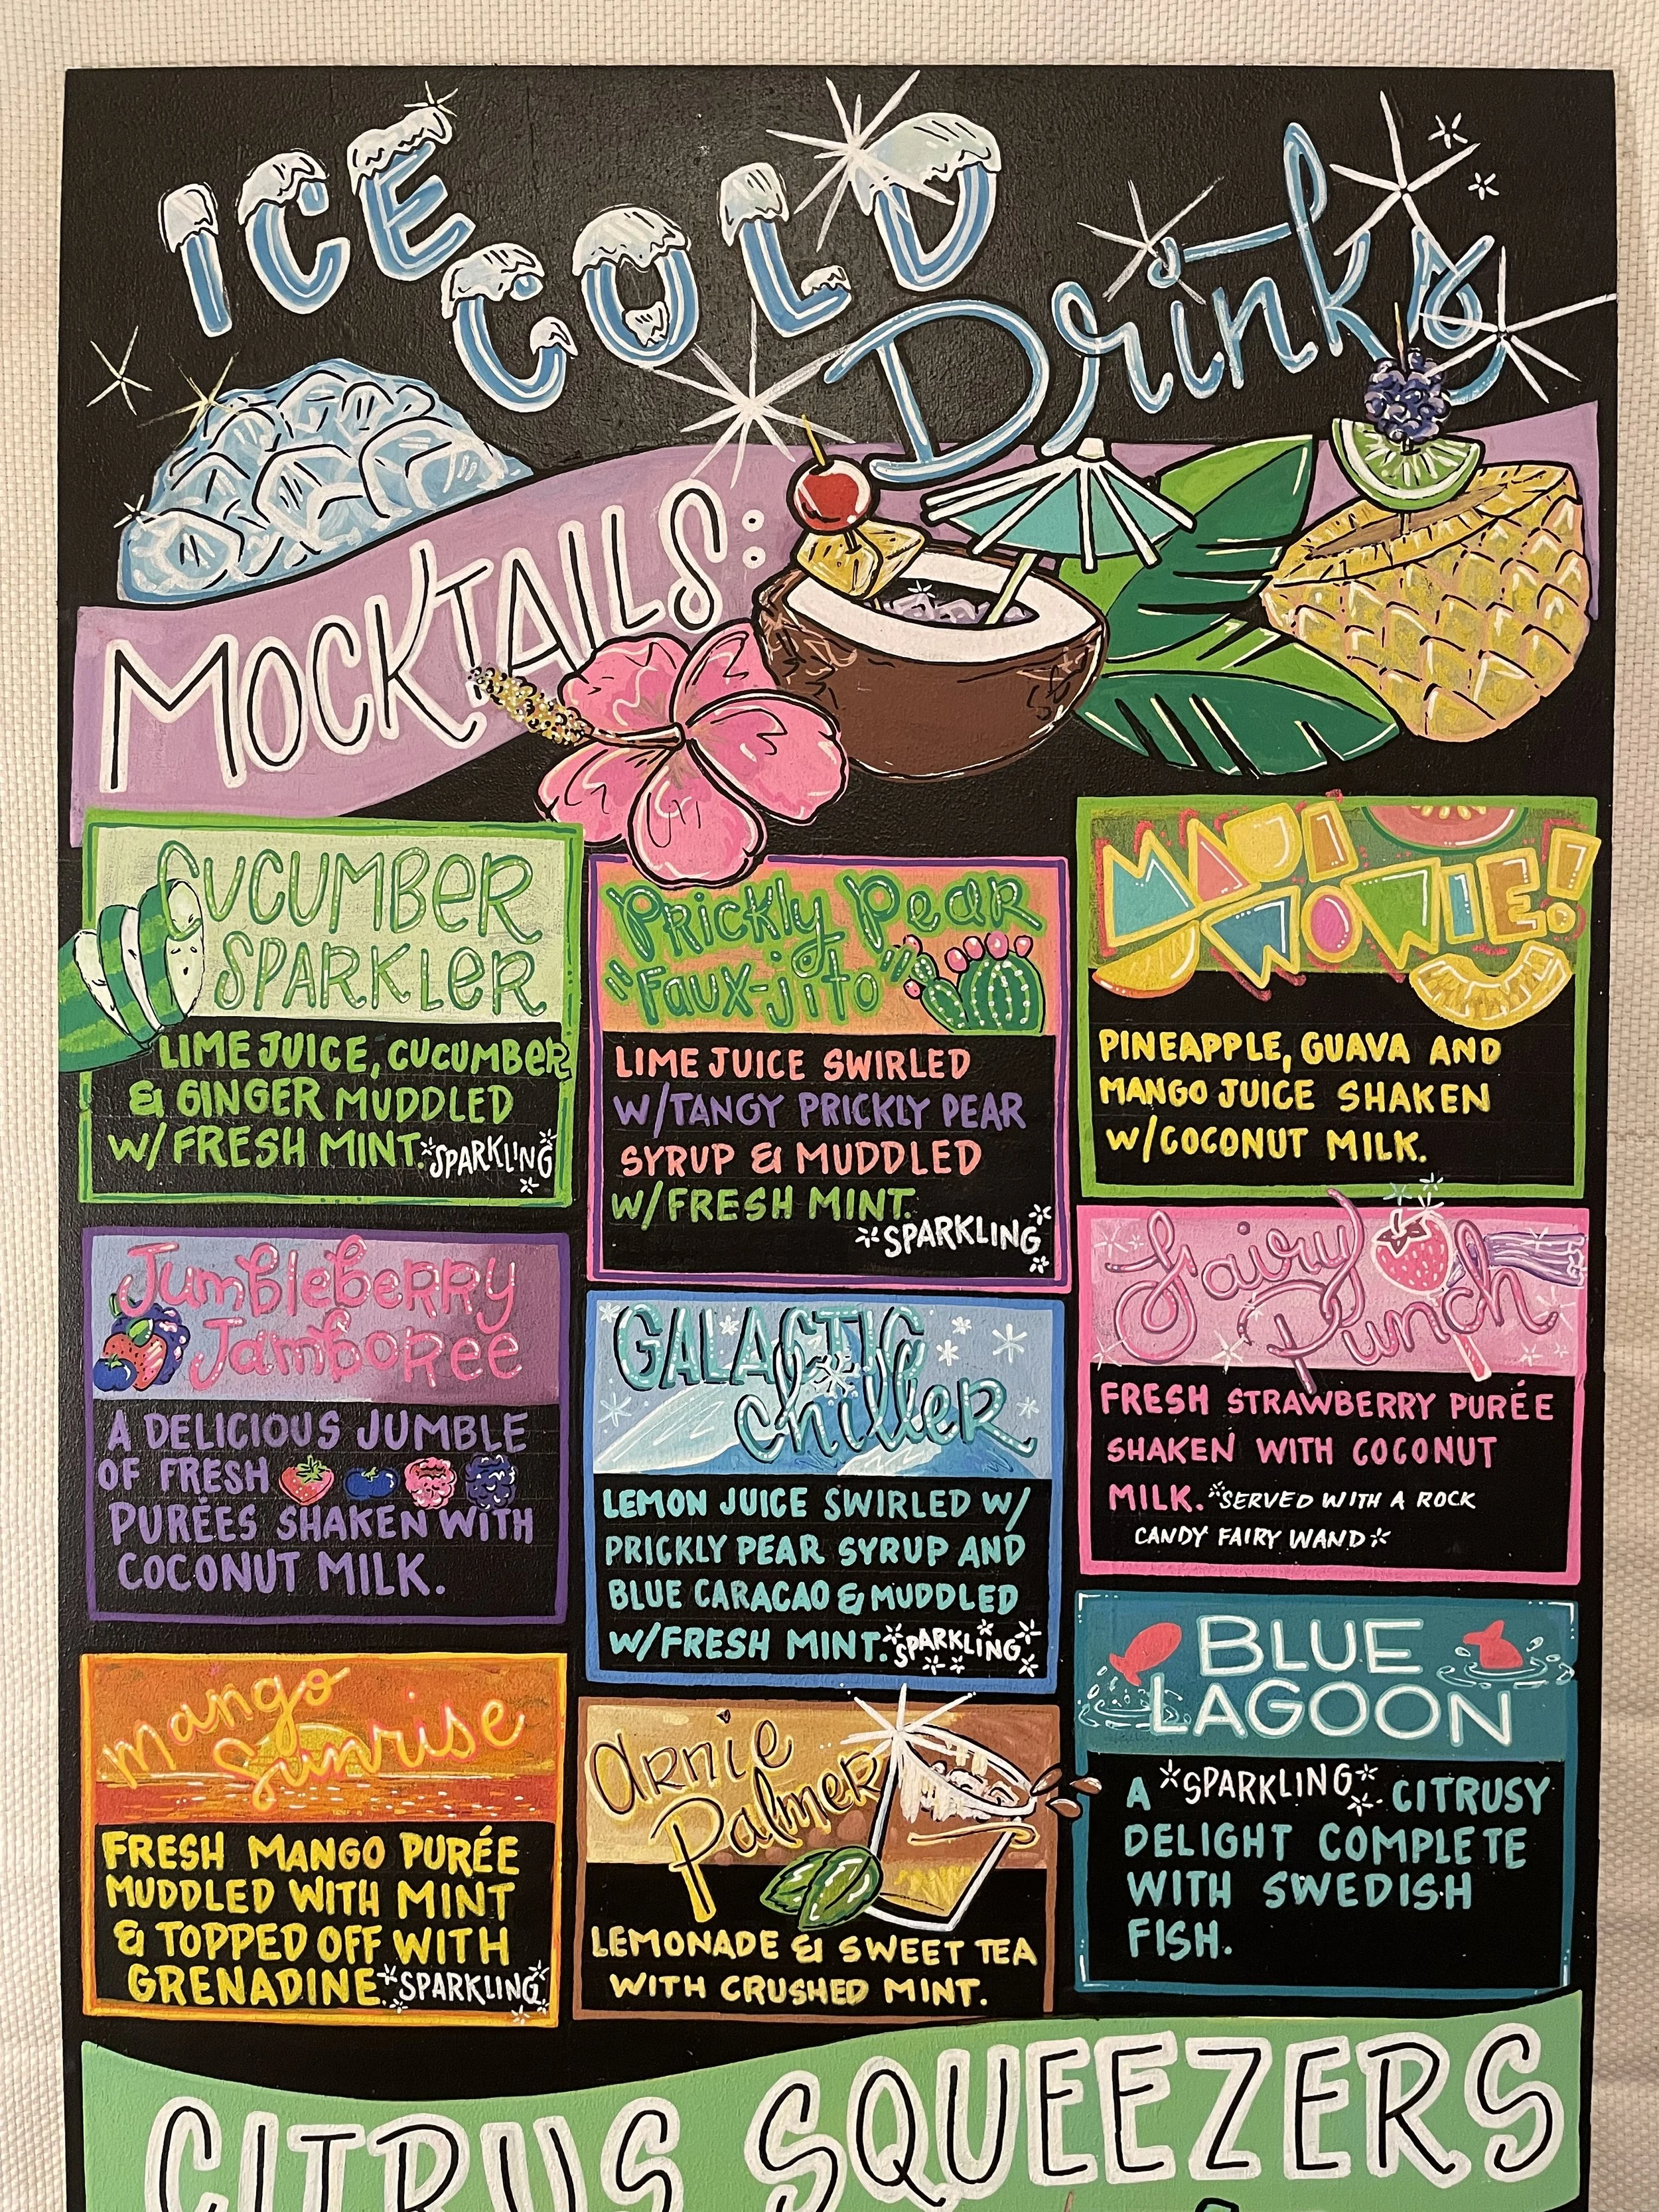 ICE
COLD
Drinks
MOCKTAILS:
CUCUMBER
SPARKLER
LIME JUICE, CUCUMBER
& GINGER MUDDLED
W/ FRESH MINT. *SPARKLING*
Prickly Pear
"Faux-jito"
LIME JUICE SWIRLED
W/TANGY PRICKLY PEAR
SYRUP & MUDDLED
W/FRESH MINT.
*SPARKLING*
MAUI
WOWIE!
PINEAPPLE, GUAVA AND
MANGO JUICE SHAKEN
W/COCONUT MILK.
Jumbleberry
Jamboree
A DELICIOUS JUMBLE
OF FRESH
PURÉES SHAKEN WITH
COCONUT MILK.
GALACTIC
chiller
LEMON JUICE SWIRLED W/
PRICKLY PEAR SYRUP AND
BLUE CARACAO & MUDDLED
W/FRESH MINT. *SPARKLING*
Fairy
Punch
FRESH STRAWBERRY PURÉE
SHAKEN WITH COCONUT
MILK. *SERVED WITH A ROCK
CANDY FAIRY WAND*
mango
Sunrise
FRESH MANGO PURÉE
MUDDLED WITH MINT
& TOPPED OFF WITH
GRENADINE. *SPARKLING*
Arnie
Palmer
LEMONADE & SWEET TEA
WITH CRUSHED MINT.
BLUE
LAGOON
A *SPARKLING* CITRUSY
DELIGHT COMPLETE
WITH SWEDISH
FISH.
CITRUS SQUEEZERS